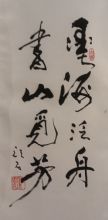 墨海泛舟
書山覓芳